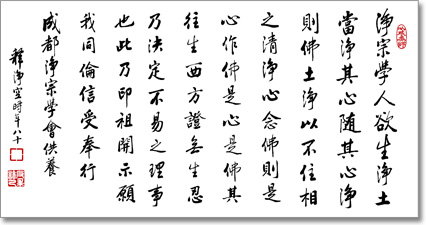 淨宗學人欲生淨土
當淨其心隨其心淨
則佛土淨以不住相
之清淨心念佛則是
心作佛是心是佛其
往生西方證無生忍
乃決定不易之理事
也此乃印祖開示願
我同倫信受奉行
成都淨宗學會供養
釋淨空時年八十